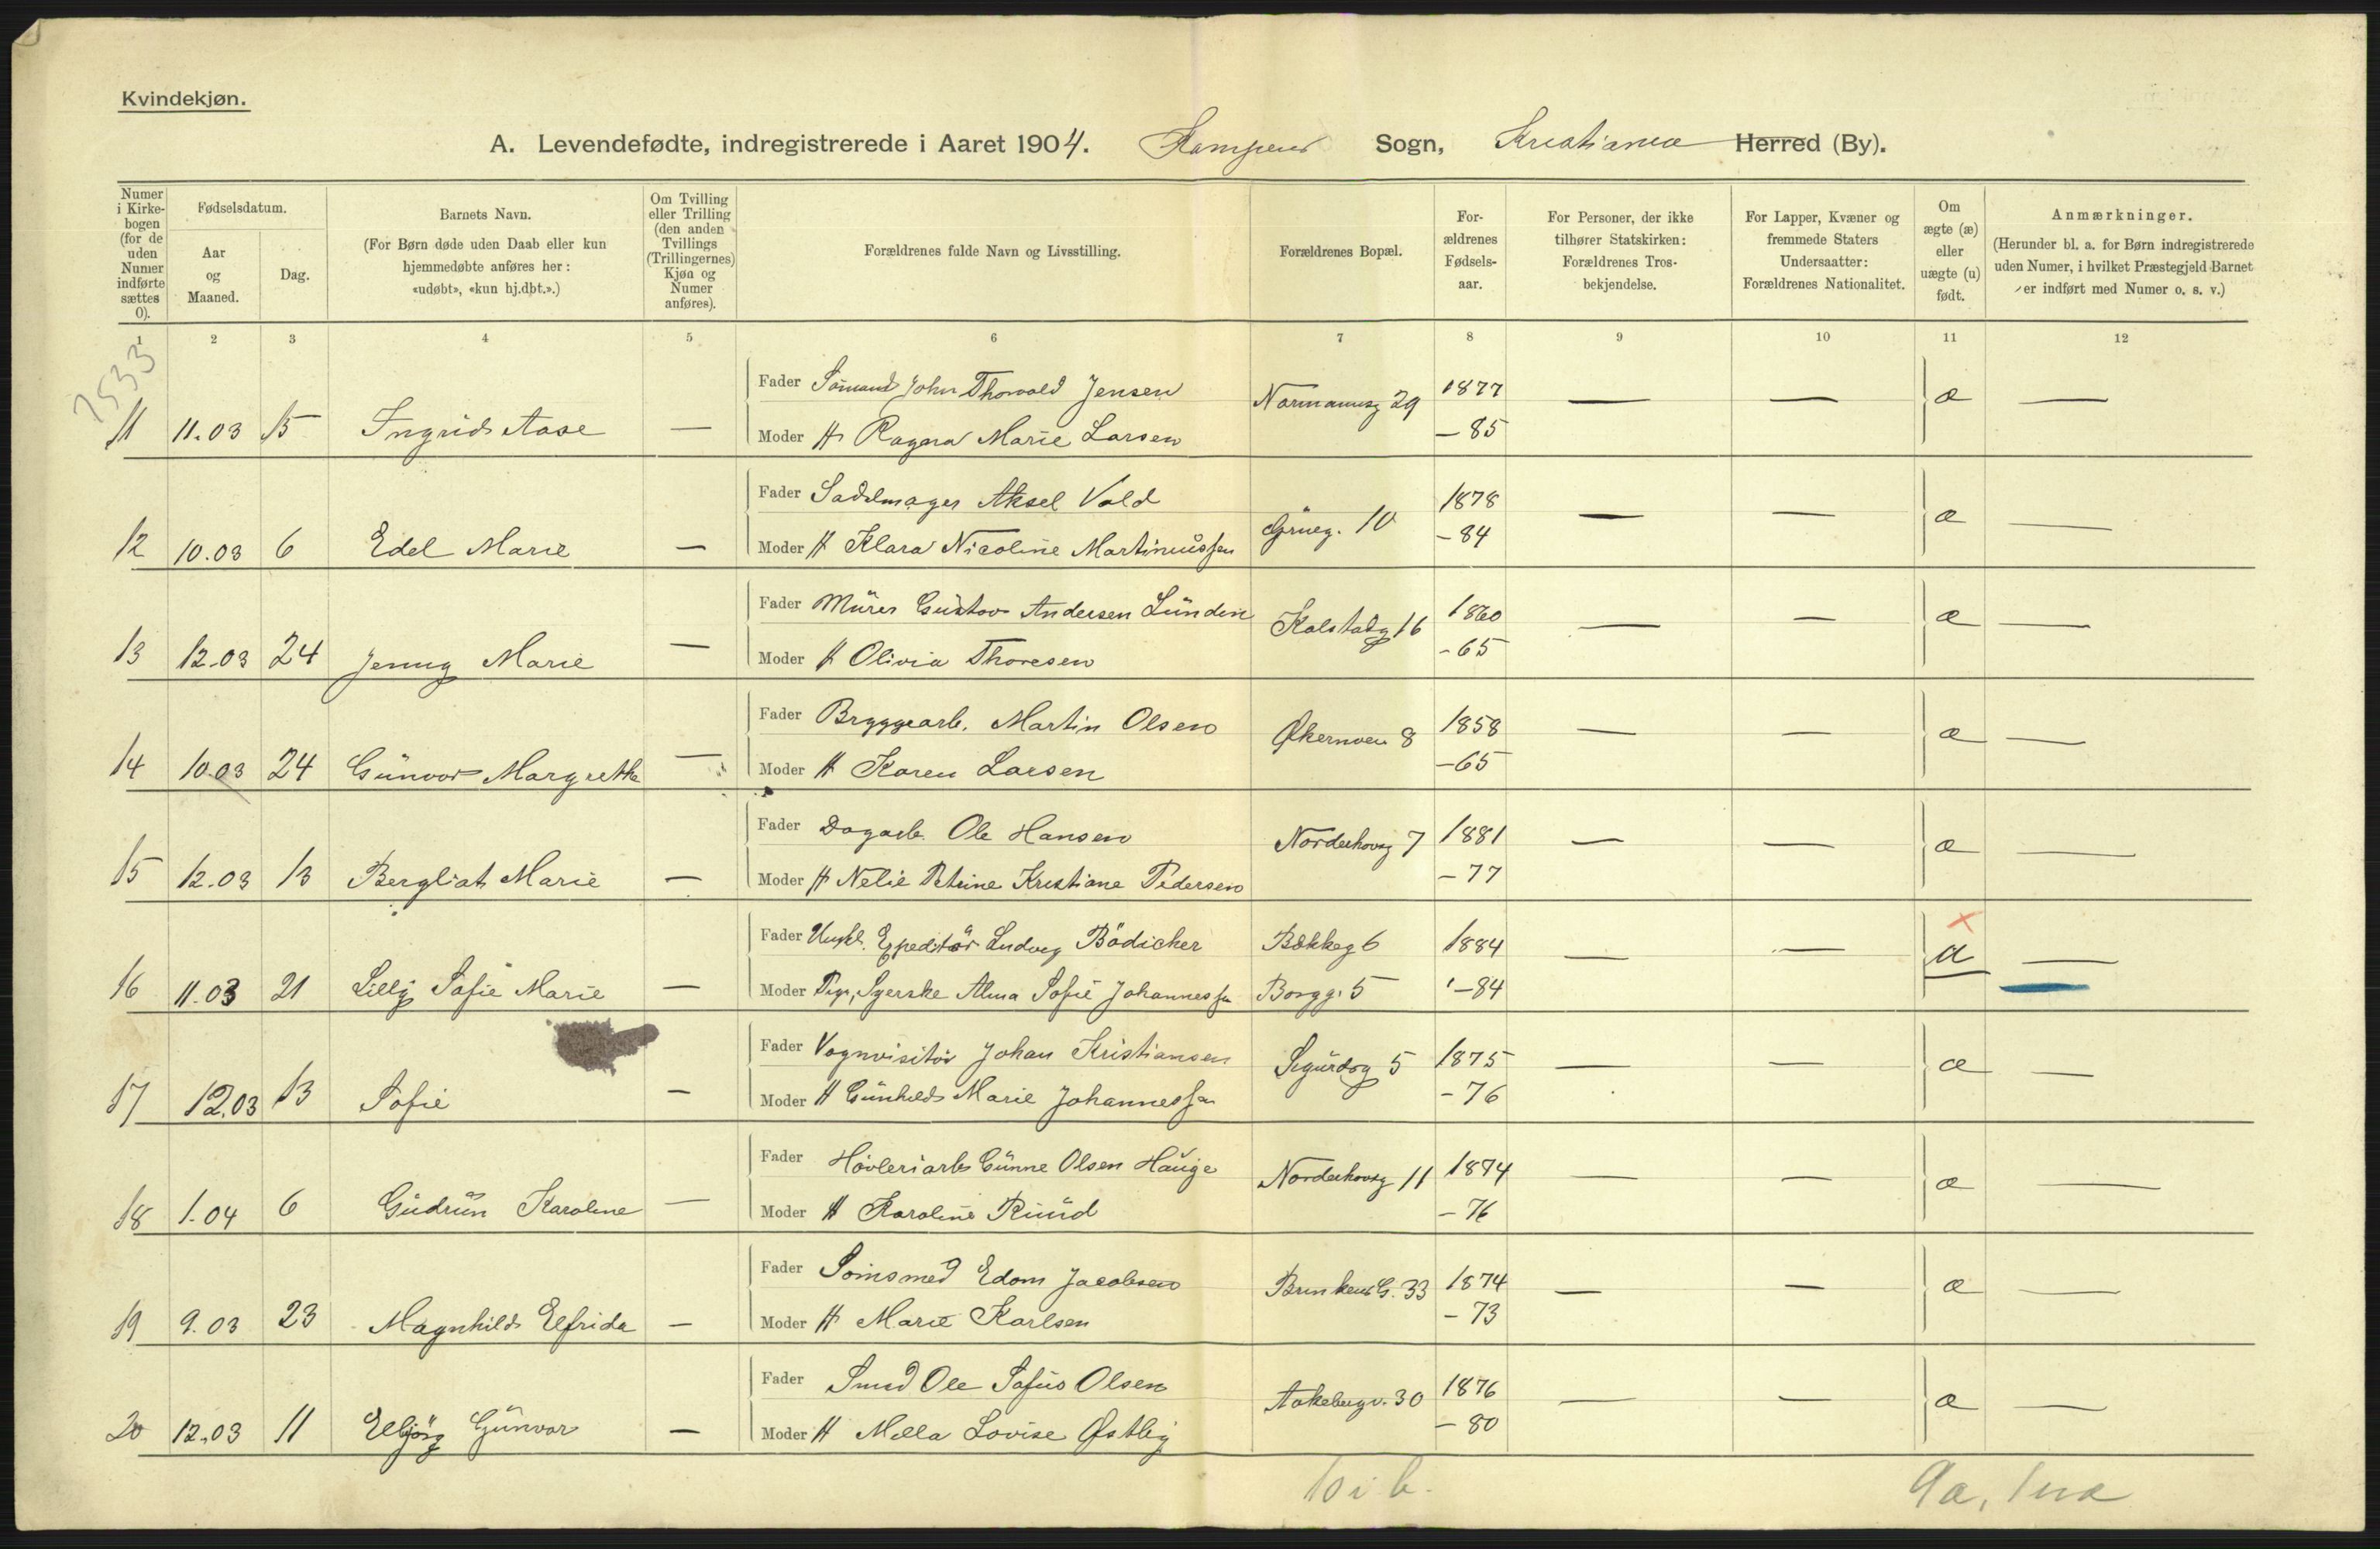 Kvindekjøn.
A. Levendefødte, indregistrerede i Aaret 1904. Kampens Sogn, Kristiania Herred (By).
Numer i Kirkebogen (for de uden Numer indførte sættes 0).
Fødselsdatum.
Aar og Maaned.
Dag.
Barnets Navn.
(For Børn døde uden Daab eller kun hjemmedøbte anføres her: «udøbt», «kun hj.dbt.».)
Om Tvilling eller Trilling (den anden Tvillings (Trillingernes) Kjøn og Numer anføres).
Forældrenes fulde Navn og Livsstilling.
Forældrenes Bopæl.
Forældrenes Fødselsaar.
For Personer, der ikke tilhører Statskirken: Forældrenes Trosbekjendelse.
For Lapper, Kvæner og fremmede Staters Undersaatter: Forældrenes Nationalitet.
Om ægte (æ) eller uægte (u) født.
Anmærkninger.
(Herunder bl. a. for Børn indregistrerede uden Numer, i hvilket Præstegjeld Barnet er indført med Numer o. s. v.)
1 2 3 4 5 6 7 8 9 10 11 12
7533
Fader Sømand John Thorvald Jensen Normannsg 29 1877 — — æ —
11 11.03 15 Ingrid Aase — Moder H Ragna Marie Larsen — 85
Fader Sadelmager Aksel Vold Grüeg. 10 1878 — — æ —
12 10.03 6 Edel Marie — Moder H Klara Nicoline Martinussen — 84
Fader Murer Gustav Andersen Lundin Kalstadg 16 1860 — — æ —
13 12.03 24 Jenny Marie — Moder H Olivia Thoresen - 65
Fader Bryggearb. Martin Olsen Økernvei 8 1858 — — æ —
14 10.03 24 Gunvor Margrethe — Moder H Karen Larsen — 65
Fader Dagarb. Ole Hansen Norderhovsg 7 1881 — — æ —
15 12.03 13 Bergliot Marie — Moder H Nelie Petrine Kristiane Pedersen — 77
Fader Ungkl. Expeditør Ludvig Bödicher Bækkeg 6 1884 — — u —
16 11.03 21 Lilly Sofie Marie — Moder Pige, Syerske Alma Sofie Johannessen Borgg. 5 — 84
Fader Vognvisitør Johan Kristiansen Sigurdsg 5 1875 — — æ —
17 12.03 13 Sofie — Moder H Gunhild Marie Johannessen — 76
Fader Høvleriarb Gunne Olsen Hauge Norderhovsg 11 1874 — — æ —
18 1.04 6 Gudrun Karoline — Moder H Karoline Ruud — 76
Fader Edom Jacobsen Brinkens G. 33 1874 — — æ —
19 9.03 23 Magnhild Elfrida — Moder H Marie Karlsen — 73
Fader Smed Ole Sofus Olsen Aakebergv. 30 1876 — — æ —
20 12.03 11 Elbjörg Gunvor — Moder H Milla Lovise Østby — 80
10 i b. 9 æ, 1 uæ